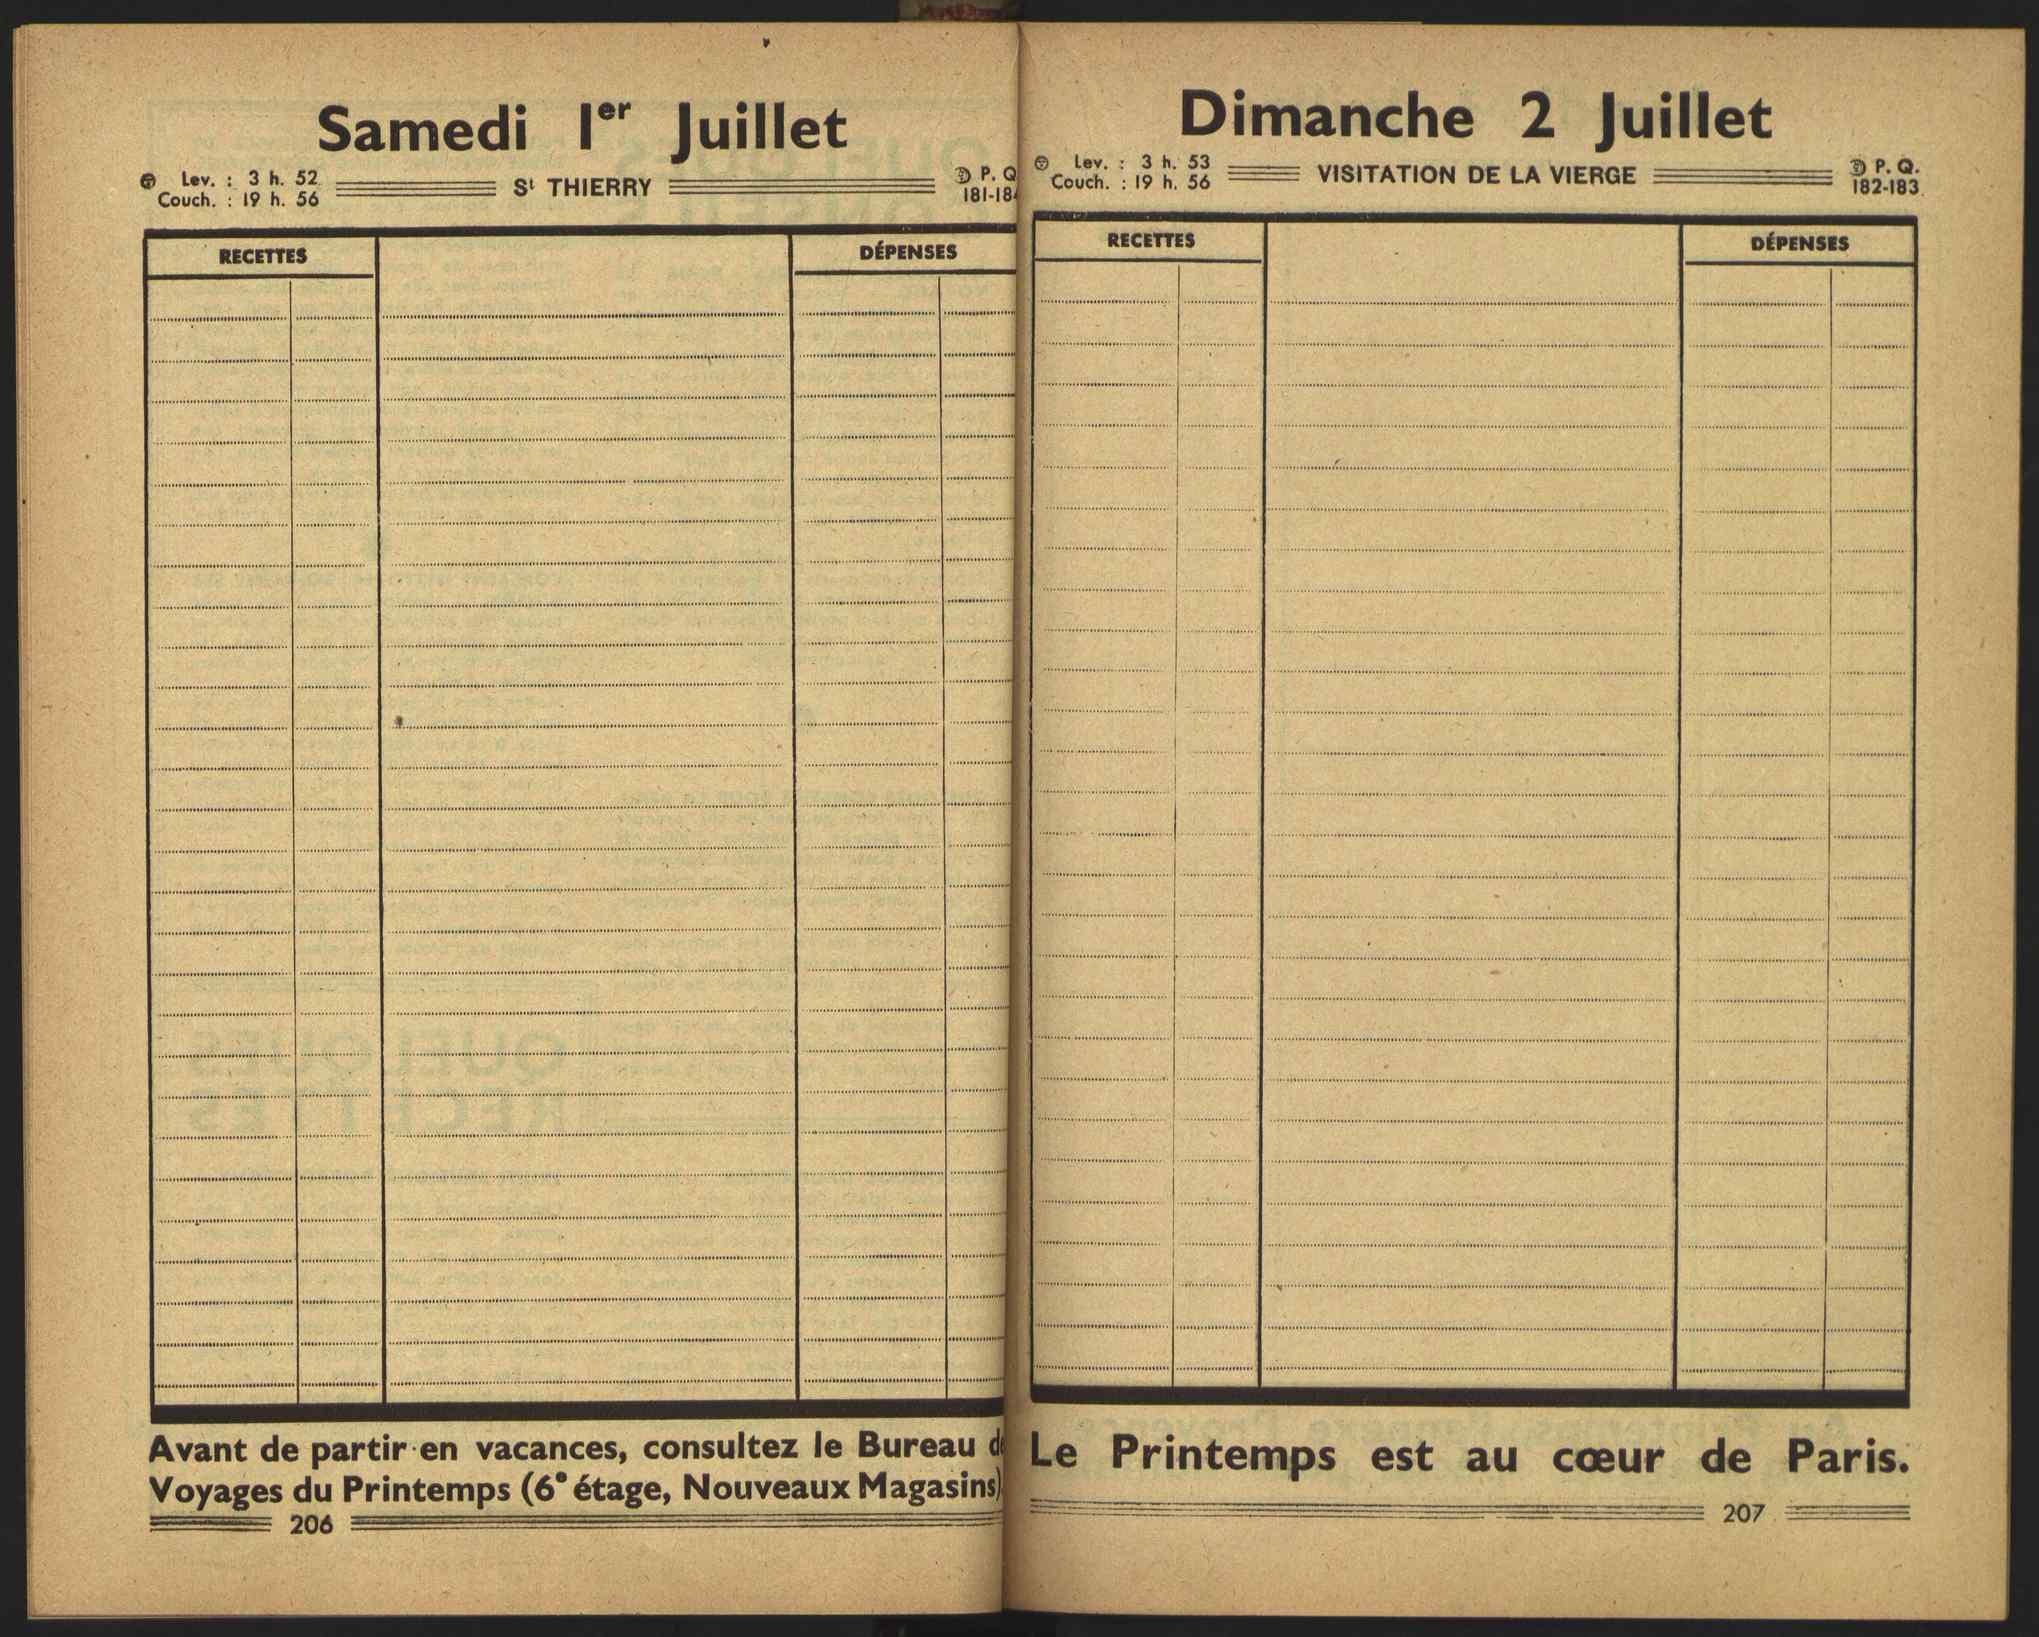 Samedi 1er Juillet
Lev. : 3 h. 52
Couch. : 19 h. 56
St THIERRY
P. Q
181-184
RECETTES
DÉPENSES
Avant de partir en vacances, consultez le Bureau de
Voyages du Printemps (6e étage, Nouveaux Magasins).
206
Dimanche 2 Juillet
Lev. : 3 h. 53
Couch. : 19 h. 56
VISITATION DE LA VIERGE
P. Q.
182-183
RECETTES
DÉPENSES
Le Printemps est au cœur de Paris.
207